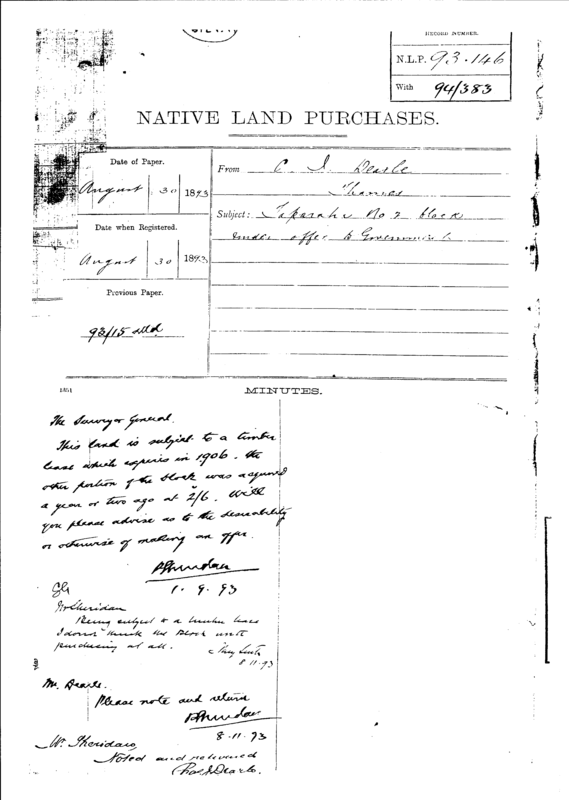 RECORD NUMBER.
N.L.P. 93.146
With 94/383
NATIVE LAND PURCHASES.
Date of Paper.
August 30 1893
Date when Registered.
August 30 1893
Previous Paper.
93/15 attd
From C. J. Dearle
Thames
Subject: No 2 block
under offer to Government
1351
MINUTES.
The Surveyor General.
This land is subject to a timber
lease which expires in 1906. The
other portion of the block was acquired
a year or two ago at 2/6. Will
you please advise as to the desirability
or otherwise of making an offer.
PSheridan
1. 9. 93
SG
Mr Sheridan
Being subject to a timber lease
I don't think the block worth
purchasing at all.
8.11.93
Mr. Dearle.
Please note and return
PSheridan
8.11.93
Mr. Sheridan,
Noted and returned
Chas J Dearle.